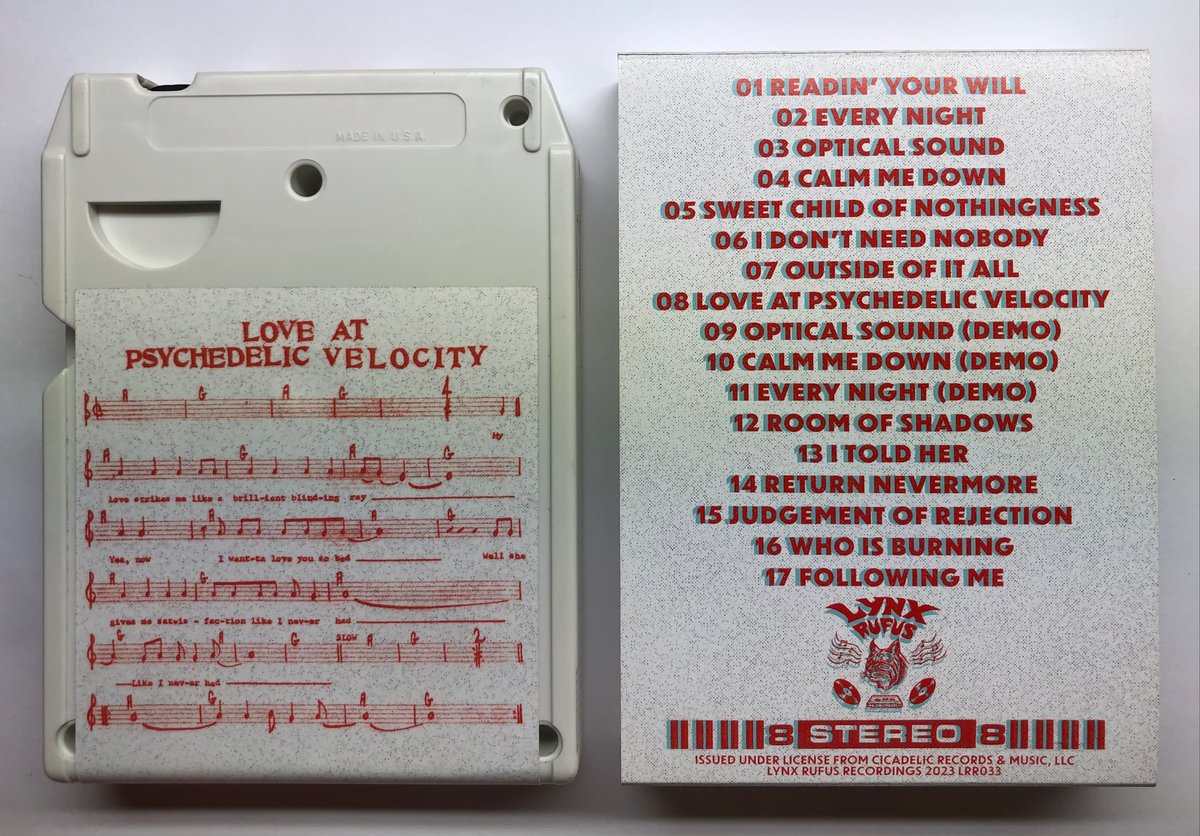 MADE IN U.S.A.
LOVE AT
PSYCHEDELIC VELOCITY
A G A G 4
My
A G A G
love strikes me like a brill-iant blind-ing ray
A A G
Yea, now I want-ta love you so bad Well she
G A
gives me satis - fac-tion like I nev-er had
G A G SLOW A G 2
Like I nev-er had
A G A G
01 READIN' YOUR WILL
02 EVERY NIGHT
03 OPTICAL SOUND
04 CALM ME DOWN
05 SWEET CHILD OF NOTHINGNESS
06 I DON'T NEED NOBODY
07 OUTSIDE OF IT ALL
08 LOVE AT PSYCHEDELIC VELOCITY
09 OPTICAL SOUND (DEMO)
10 CALM ME DOWN (DEMO)
11 EVERY NIGHT (DEMO)
12 ROOM OF SHADOWS
13 I TOLD HER
14 RETURN NEVERMORE
15 JUDGEMENT OF REJECTION
16 WHO IS BURNING
17 FOLLOWING ME
LYNX
RUFUS
8 STEREO 8
ISSUED UNDER LICENSE FROM CICADELIC RECORDS & MUSIC, LLC
LYNX RUFUS RECORDINGS 2023 LRR033